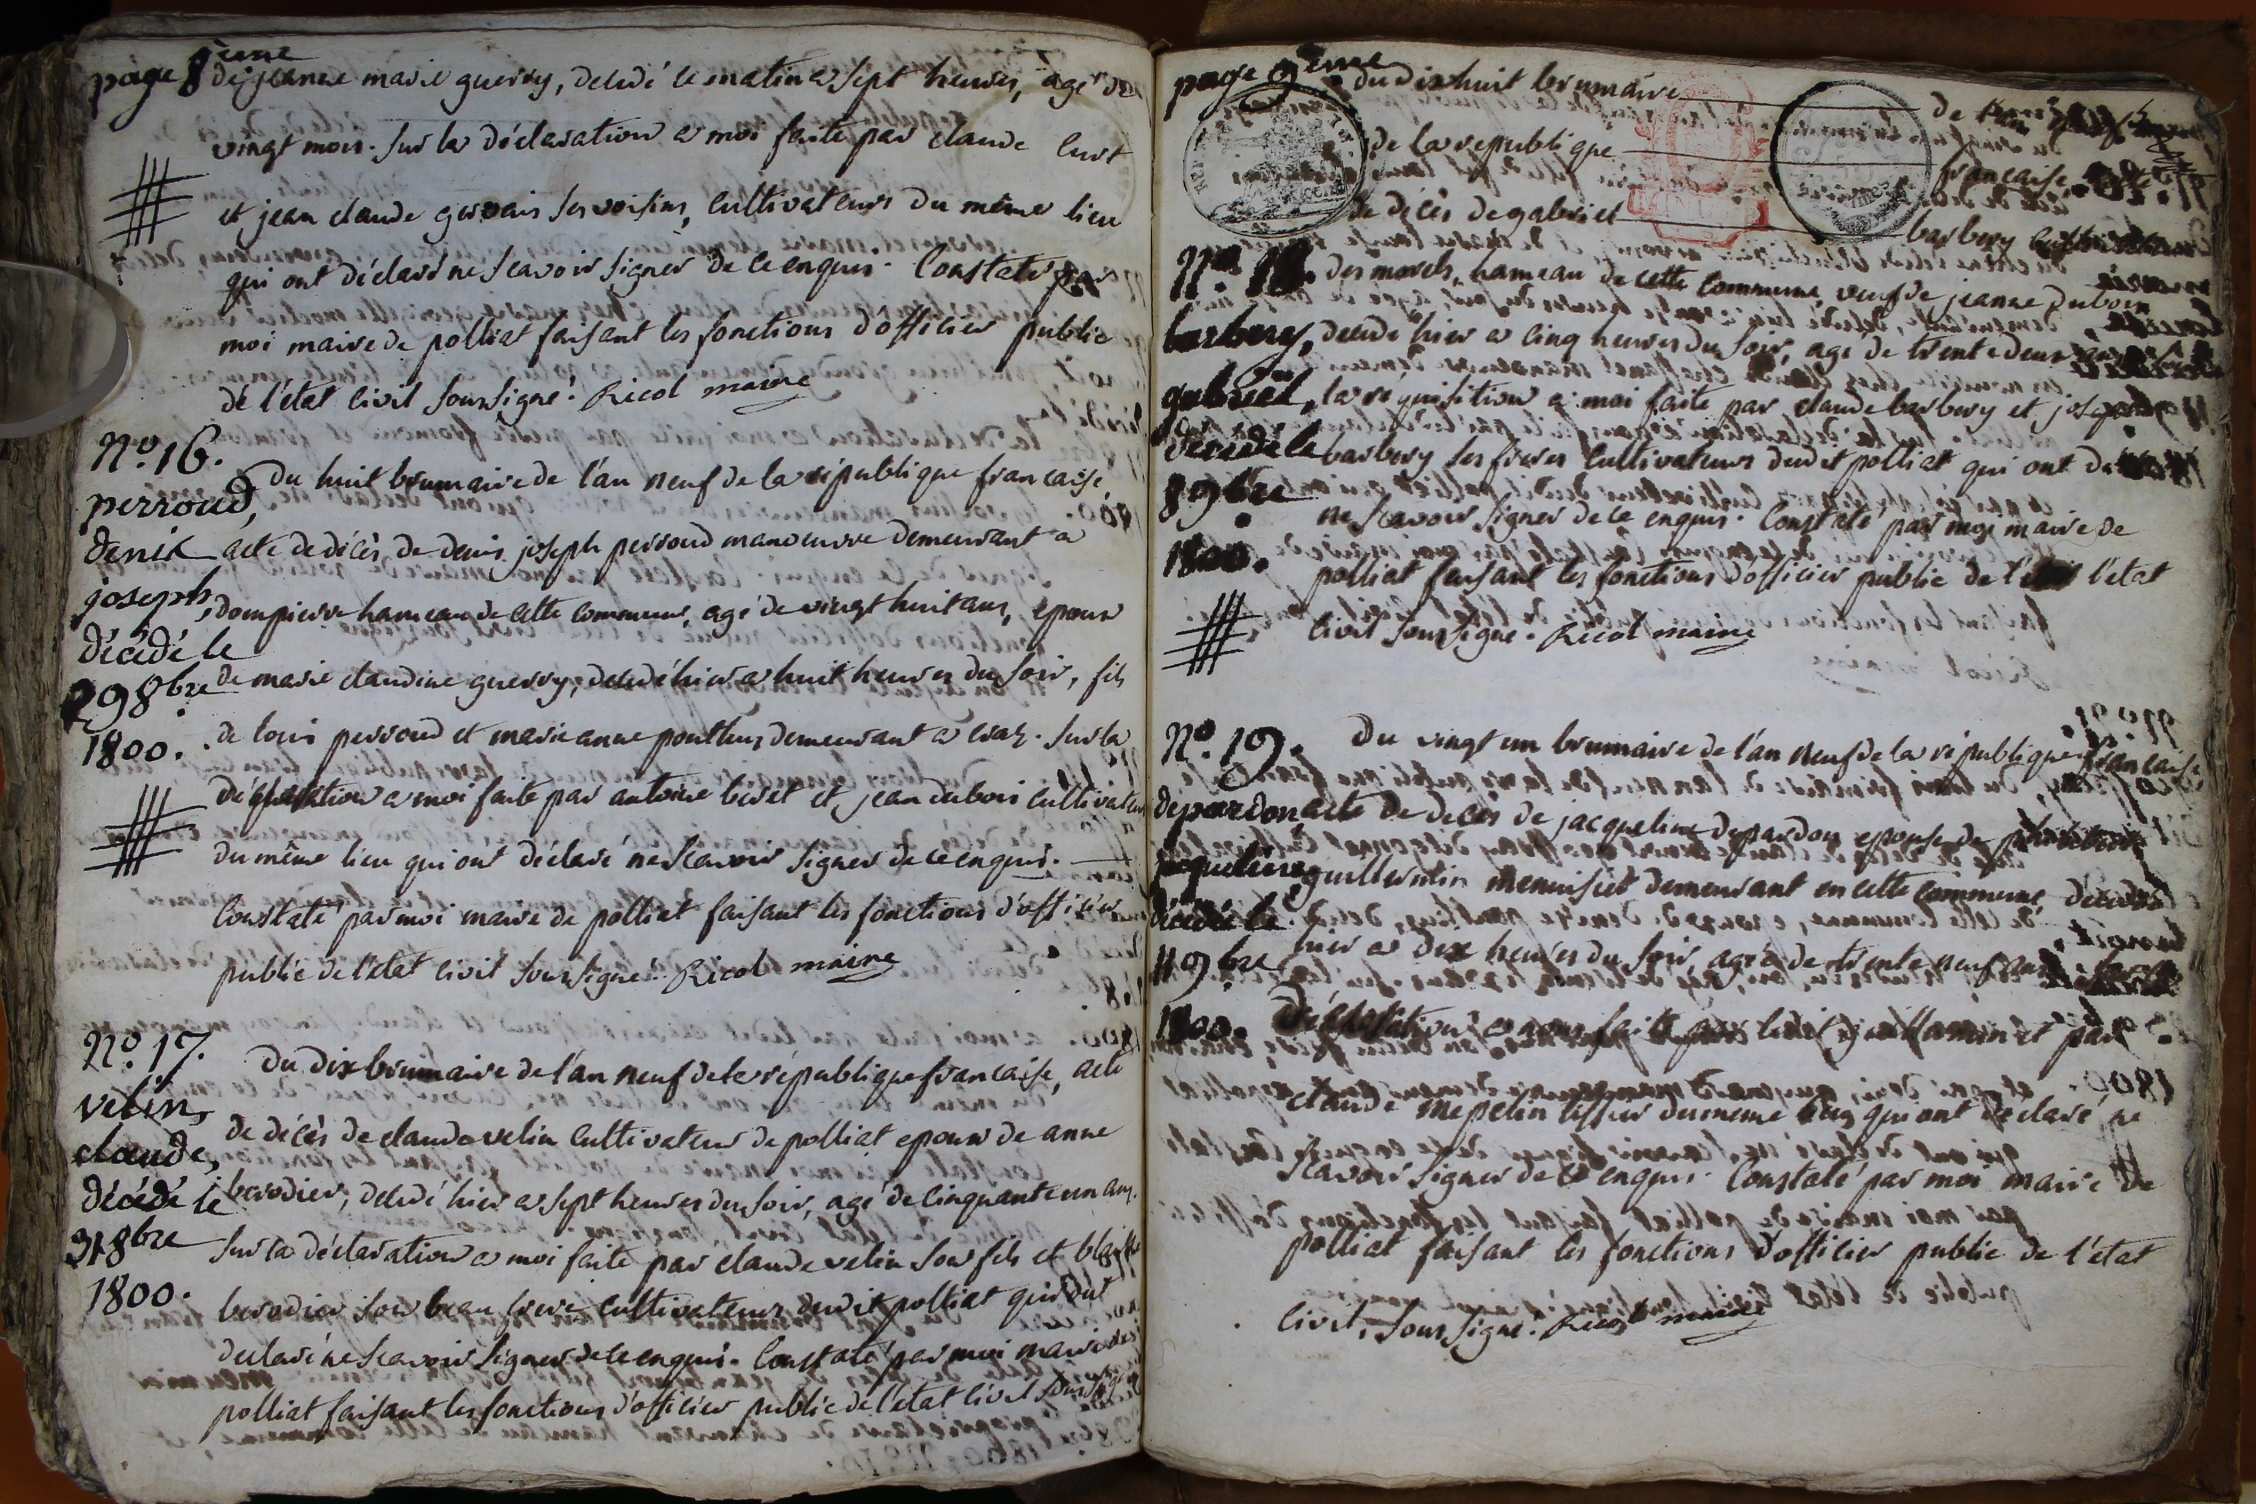 page 8ème
de jeanne marie guerry, decedé ce matin a sept heures, agé de
vingt mois. Sur la déclaration a moi faite par claude curt
et jean claude gervais ses voisins, cultivateurs du même lieu
qui ont déclaré ne scavoir signer de ce enquis. Constaté par
moi maire de polliat faisant les fonctions d'officier public
de l'état civil soussigné. Ricol maire
N.º 16.
perroud,
denis
joseph,
décédé le
29 8bre
1800.
Du huit brumaire de l'an neuf de la république francaise
acte de décès de denis joseph perroud manoeuvre demeurant a
dompierre hameau de cette commune, agé de vingt huit ans, epoux
de marie claudine guerry, decedé hier a huit heures du soir, fils
de louis perroud et marie anne ponthus demeurant a craz. Sur la
déclaration a moi faite par antoine beret et jean dubois cultivateurs
du même lieu qui ont déclaré ne scavoir signer de ce enquis.
Constaté par moi maire de polliat faisant les fonctions d'officier
public de l'etat civil soussigné. Ricol maire
N.º 17.
velin,
claude,
décédé le
31 8bre
1800.
Du dix brumaire de l'an neuf de la république francaise, acte
de décès de claude velin cultivateur de polliat epoux de anne
berodier, decedé hier a sept heures du soir, agé de cinquante un ans.
Sur la déclaration a moi faite par claude velin son fils et blaise
berodier son beau frere cultivateurs dudit polliat qui ont
declaré ne scavoir signer de ce enquis. Constaté par moi maire de
polliat faisant les fonctions d'officier public de l'etat civil soussigné
page 9ème
du dix huit brumaire de l'an
de la republique francaise,
de décès de gabriel barbery
N.º 18.
barbery,
gabriel,
décédé le
8 9bre
1800.
des morels, hameau de cette commune, veuf de jeanne dubois
decedé hier a cinq heures du soir, agé de trente deux ans
la réquisition a moi faite par claude barbery et joseph
barbery ses freres cultivateurs dudit polliat qui ont
ne scavoir signer de ce enquis. Constaté par moi maire de
polliat faisant les fonctions d'officier public de l'etat l'etat
civil soussigné. Ricol maire
N.º 19.
depardon
jaqueline,
décédée le
11 9bre
1800.
Du vingt un brumaire de l'an neuf de la république francaise
acte de deces de jacqueline depardon epouse de
guillermin menuisier demeurant en cette commune, decedée
hier a dix heures du soir, agée de trente neuf ans
déclaration a moi faite par ledit guillamin et par
claude tissier du meme lieu qui ont declaré ne
scavoir signer de ce enquis. Constaté par moi maire de
polliat faisant les fonctions d'officier public de l'état
civil, soussigné. Ricol maire